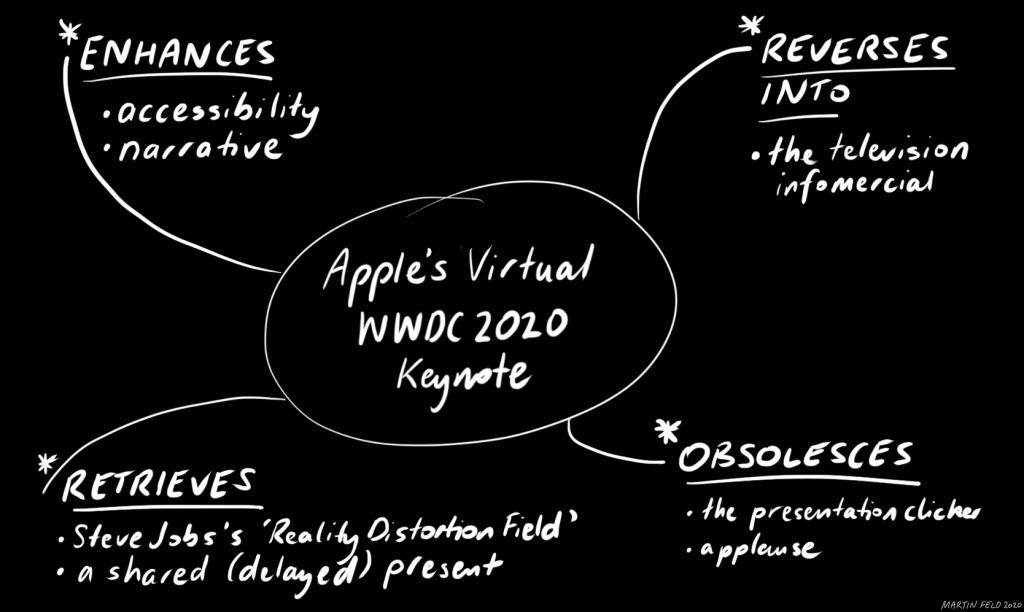 * ENHANCES
• accessibility
• narrative
* REVERSES
INTO
• the television
infomercial
Apple's Virtual
WWDC 2020
Keynote
* RETRIEVES
• Steve Jobs's 'Reality Distortion Field'
• a shared (delayed) present
* OBSOLESCES
• the presentation clicker
• applause
MARTIN FELD 2020